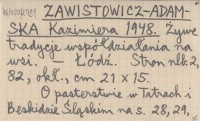 ZAWISTOWICZ-ADAM-
SKA Kazimiera 1948. Żywe
tradycje współdziałania na
wsi. — Łódź. Stron nlb. 2,
82, okł., cm 21 x 15.
O pasterstwie w Tatrach i
Beskidzie Śląskim na s. 28, 29,